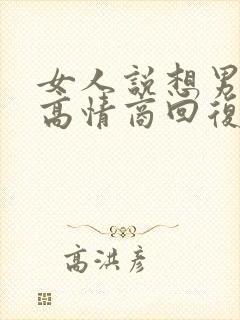 女人說想男
高情商回復
高洪彥